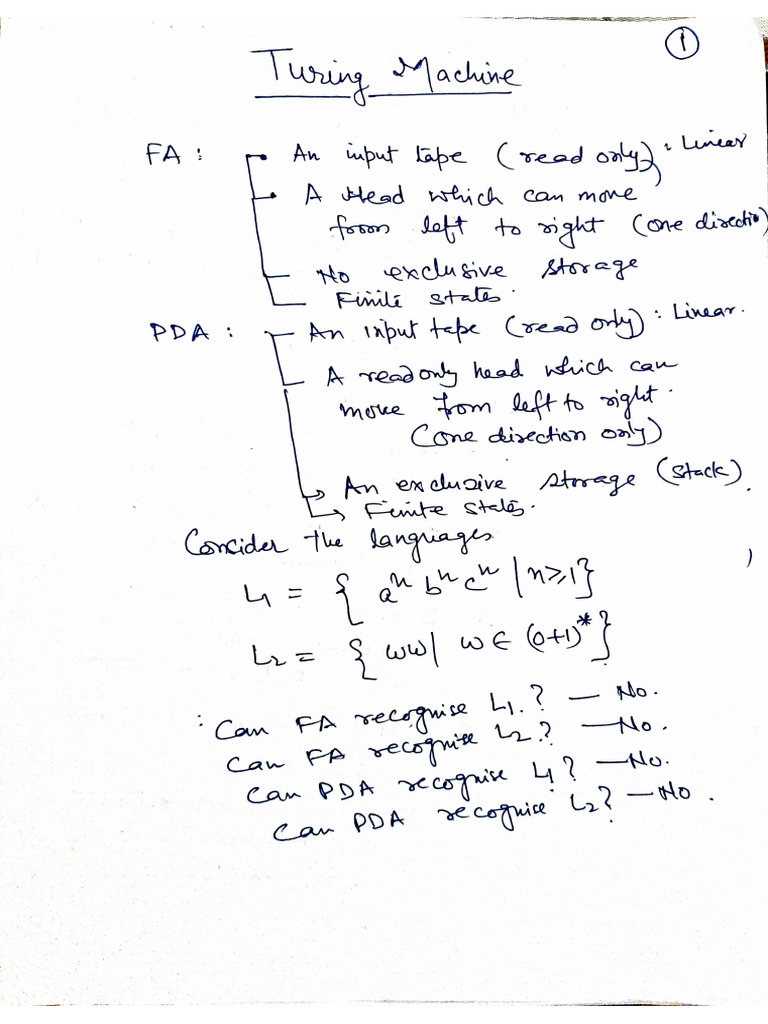 ①
Turing Machine
FA : • An input tape (read only) : Linear
• A Head which can move
from left to right (one directio)
No exclusive storage
Finite states.
PDA : An input tape (read only) : Linear.
A read only head which can
move from left to right.
(one direction only)
An exclusive storage (stack).
Finite states.
Consider the languages
L₁ = { aⁿ bⁿ cⁿ | n≥1}
L₂ = { ww | w ∈ (0+1)* }
: Can FA recognise L₁.? — No.
Can FA recognise L₂? — No.
Can PDA recognise L₁? — No.
Can PDA recognise L₂? — No.